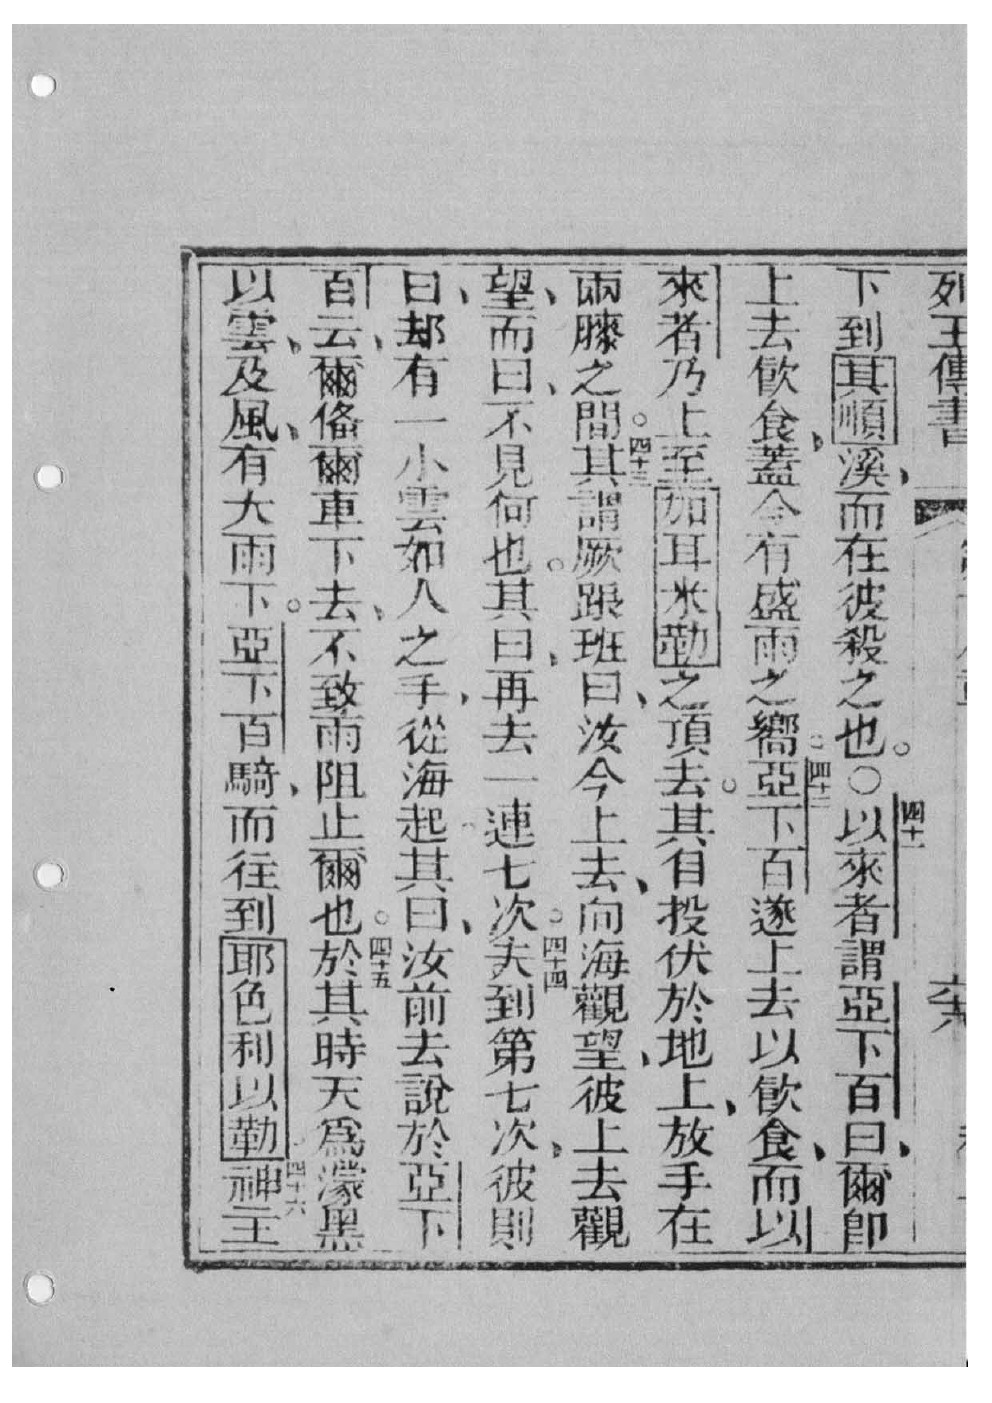 列王傳書
下到其順溪、而在彼殺之也。○四十一以來者謂亞下百曰、爾卽
上去飲食、蓋今有盛雨之嚮。四十二亞下百遂上去以飲食、而以
來者乃上至加耳米勒之頂去。其自投伏於地上、放手在
兩膝之間。四十三其謂厥跟班曰、汝今上去、向海觀望、彼上去觀
望、而曰、不見何也。其曰、再去一連七次。四十四夫到第七次、彼則
曰、却有一小雲如人之手、從海起。其曰、汝前去說於亞下
百云、爾俻爾車下去、不致雨阻止爾也。四十五於其時天爲濛黑
以雲、及風、有大雨下。亞下百騎、而往到耶色利以勒。四十六神主